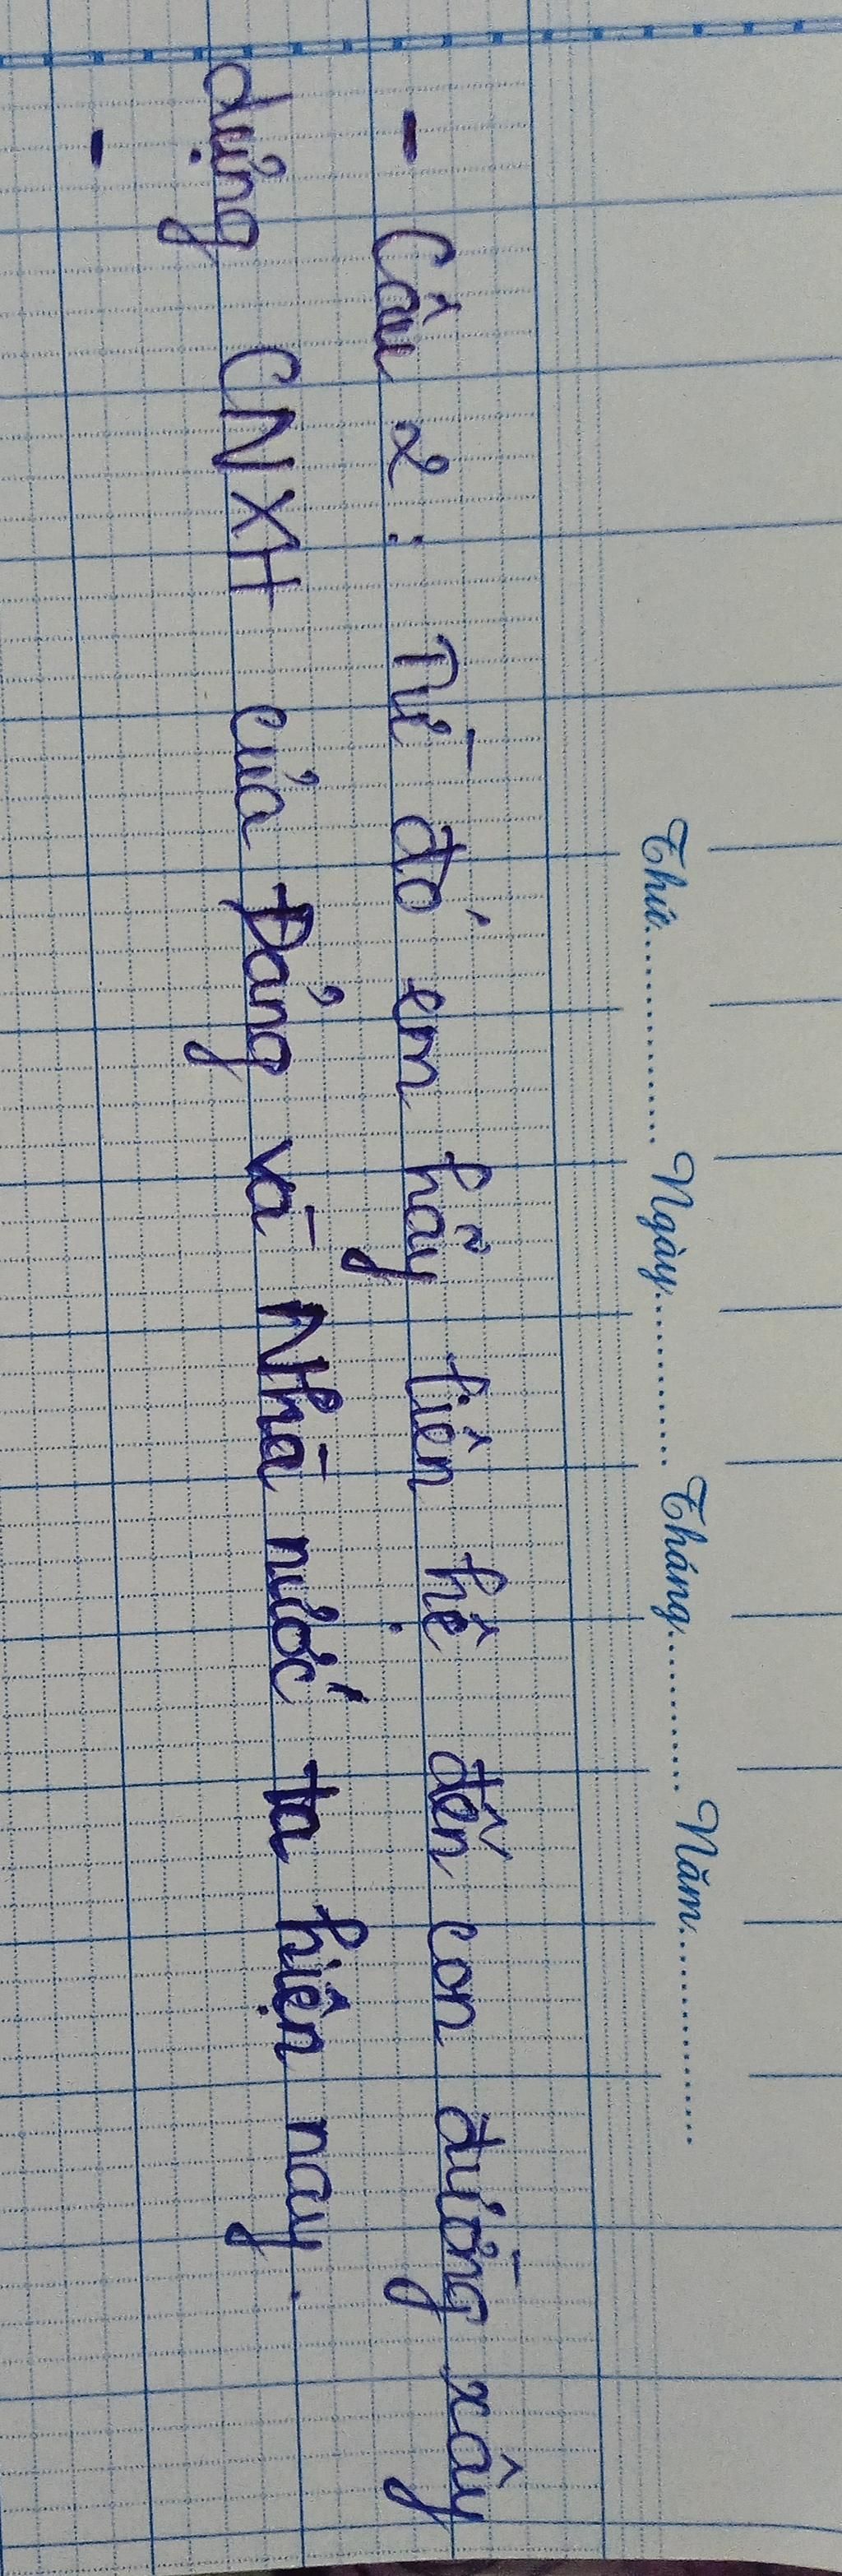 Thứ............... Ngày............... Tháng............... Năm...............
- Câu 2: Từ đó em hãy liên hệ đến con đường xây
dựng CNXH của Đảng và Nhà nước ta hiện nay.
-